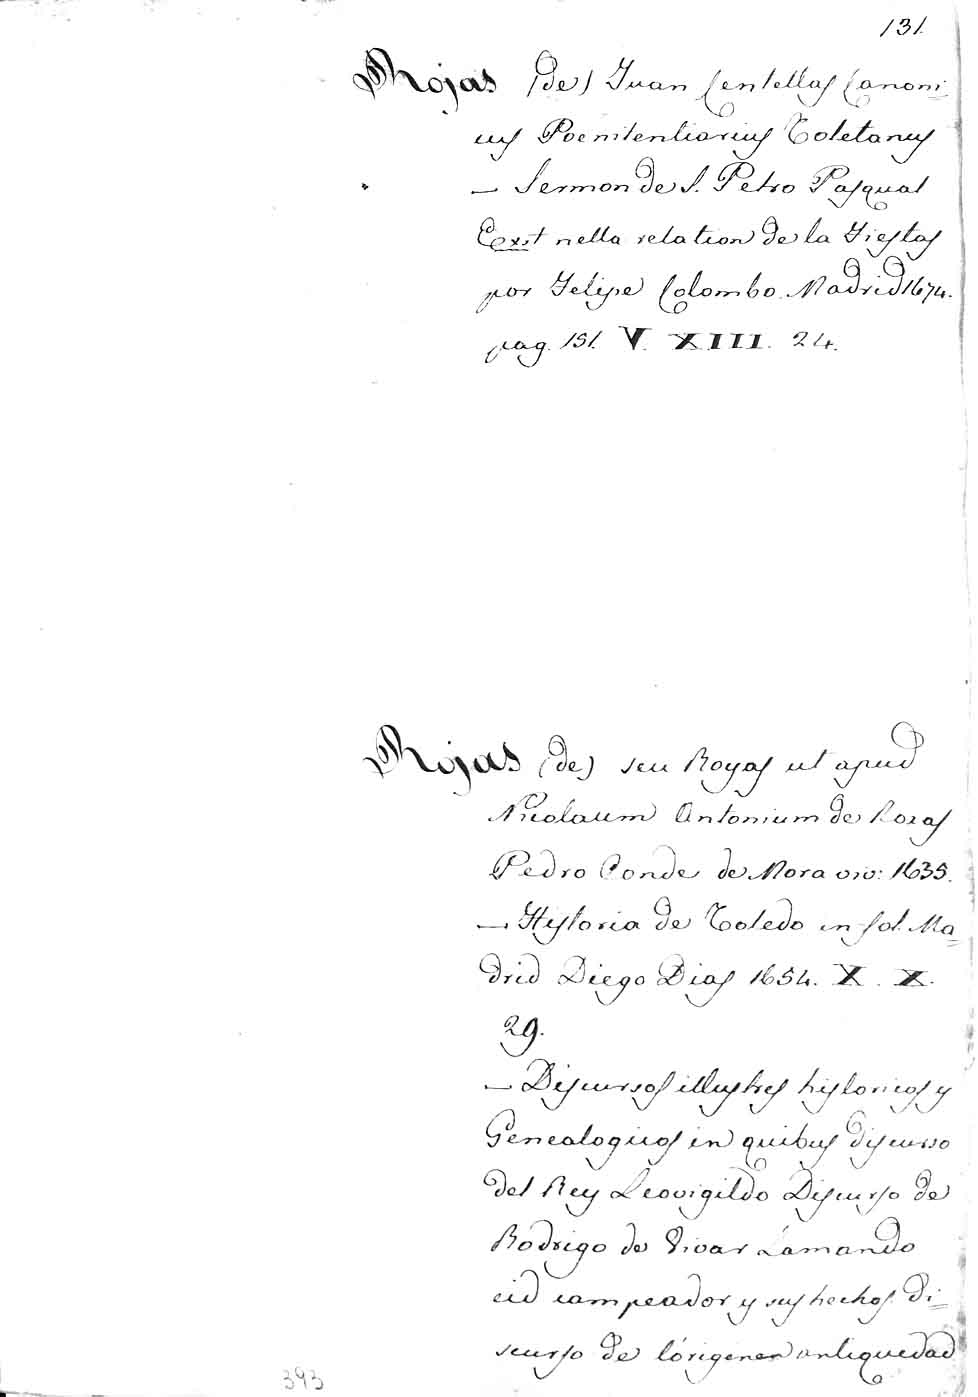 131.
Rojas (de) Juan Centellas Canoni=
cus Poenitentiarius Toletanus
— Sermon de S. Petro Pasqual
Exst nella relation de la Fiestas
por Felipe Colombo. Madrid 1674.
pag. 151. V. XIII. 24.
Rojas (de) seu Royas ut apud
Nicolaum Antonium de Roxas
Pedro Conde de Mora viv: 1635.
— Historia de Toledo in fol. Ma=
drid Diego Dias 1654. X. X.
29.
— Discursos illustres historicos y
Genealogicos in quibus discurso
del Rey Leovigildo Discurso de
Rodrigo de Vivar Lamando
cid campeador y sus hechos. Di=
scurso de l'origenen antiquedad
393